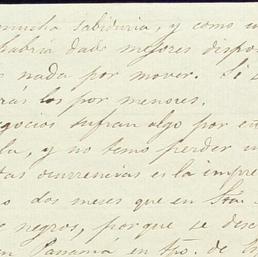 mucha sabiduria, y como u
habria dado mejores dispos
nada por mover. Si
rás los por menores.
egocios sufran algo por
la, y no temo perder u
tas ocurrencias es la impre
o dos meses que en Sta.
negros, porque se des
en Panamá en tpo. de